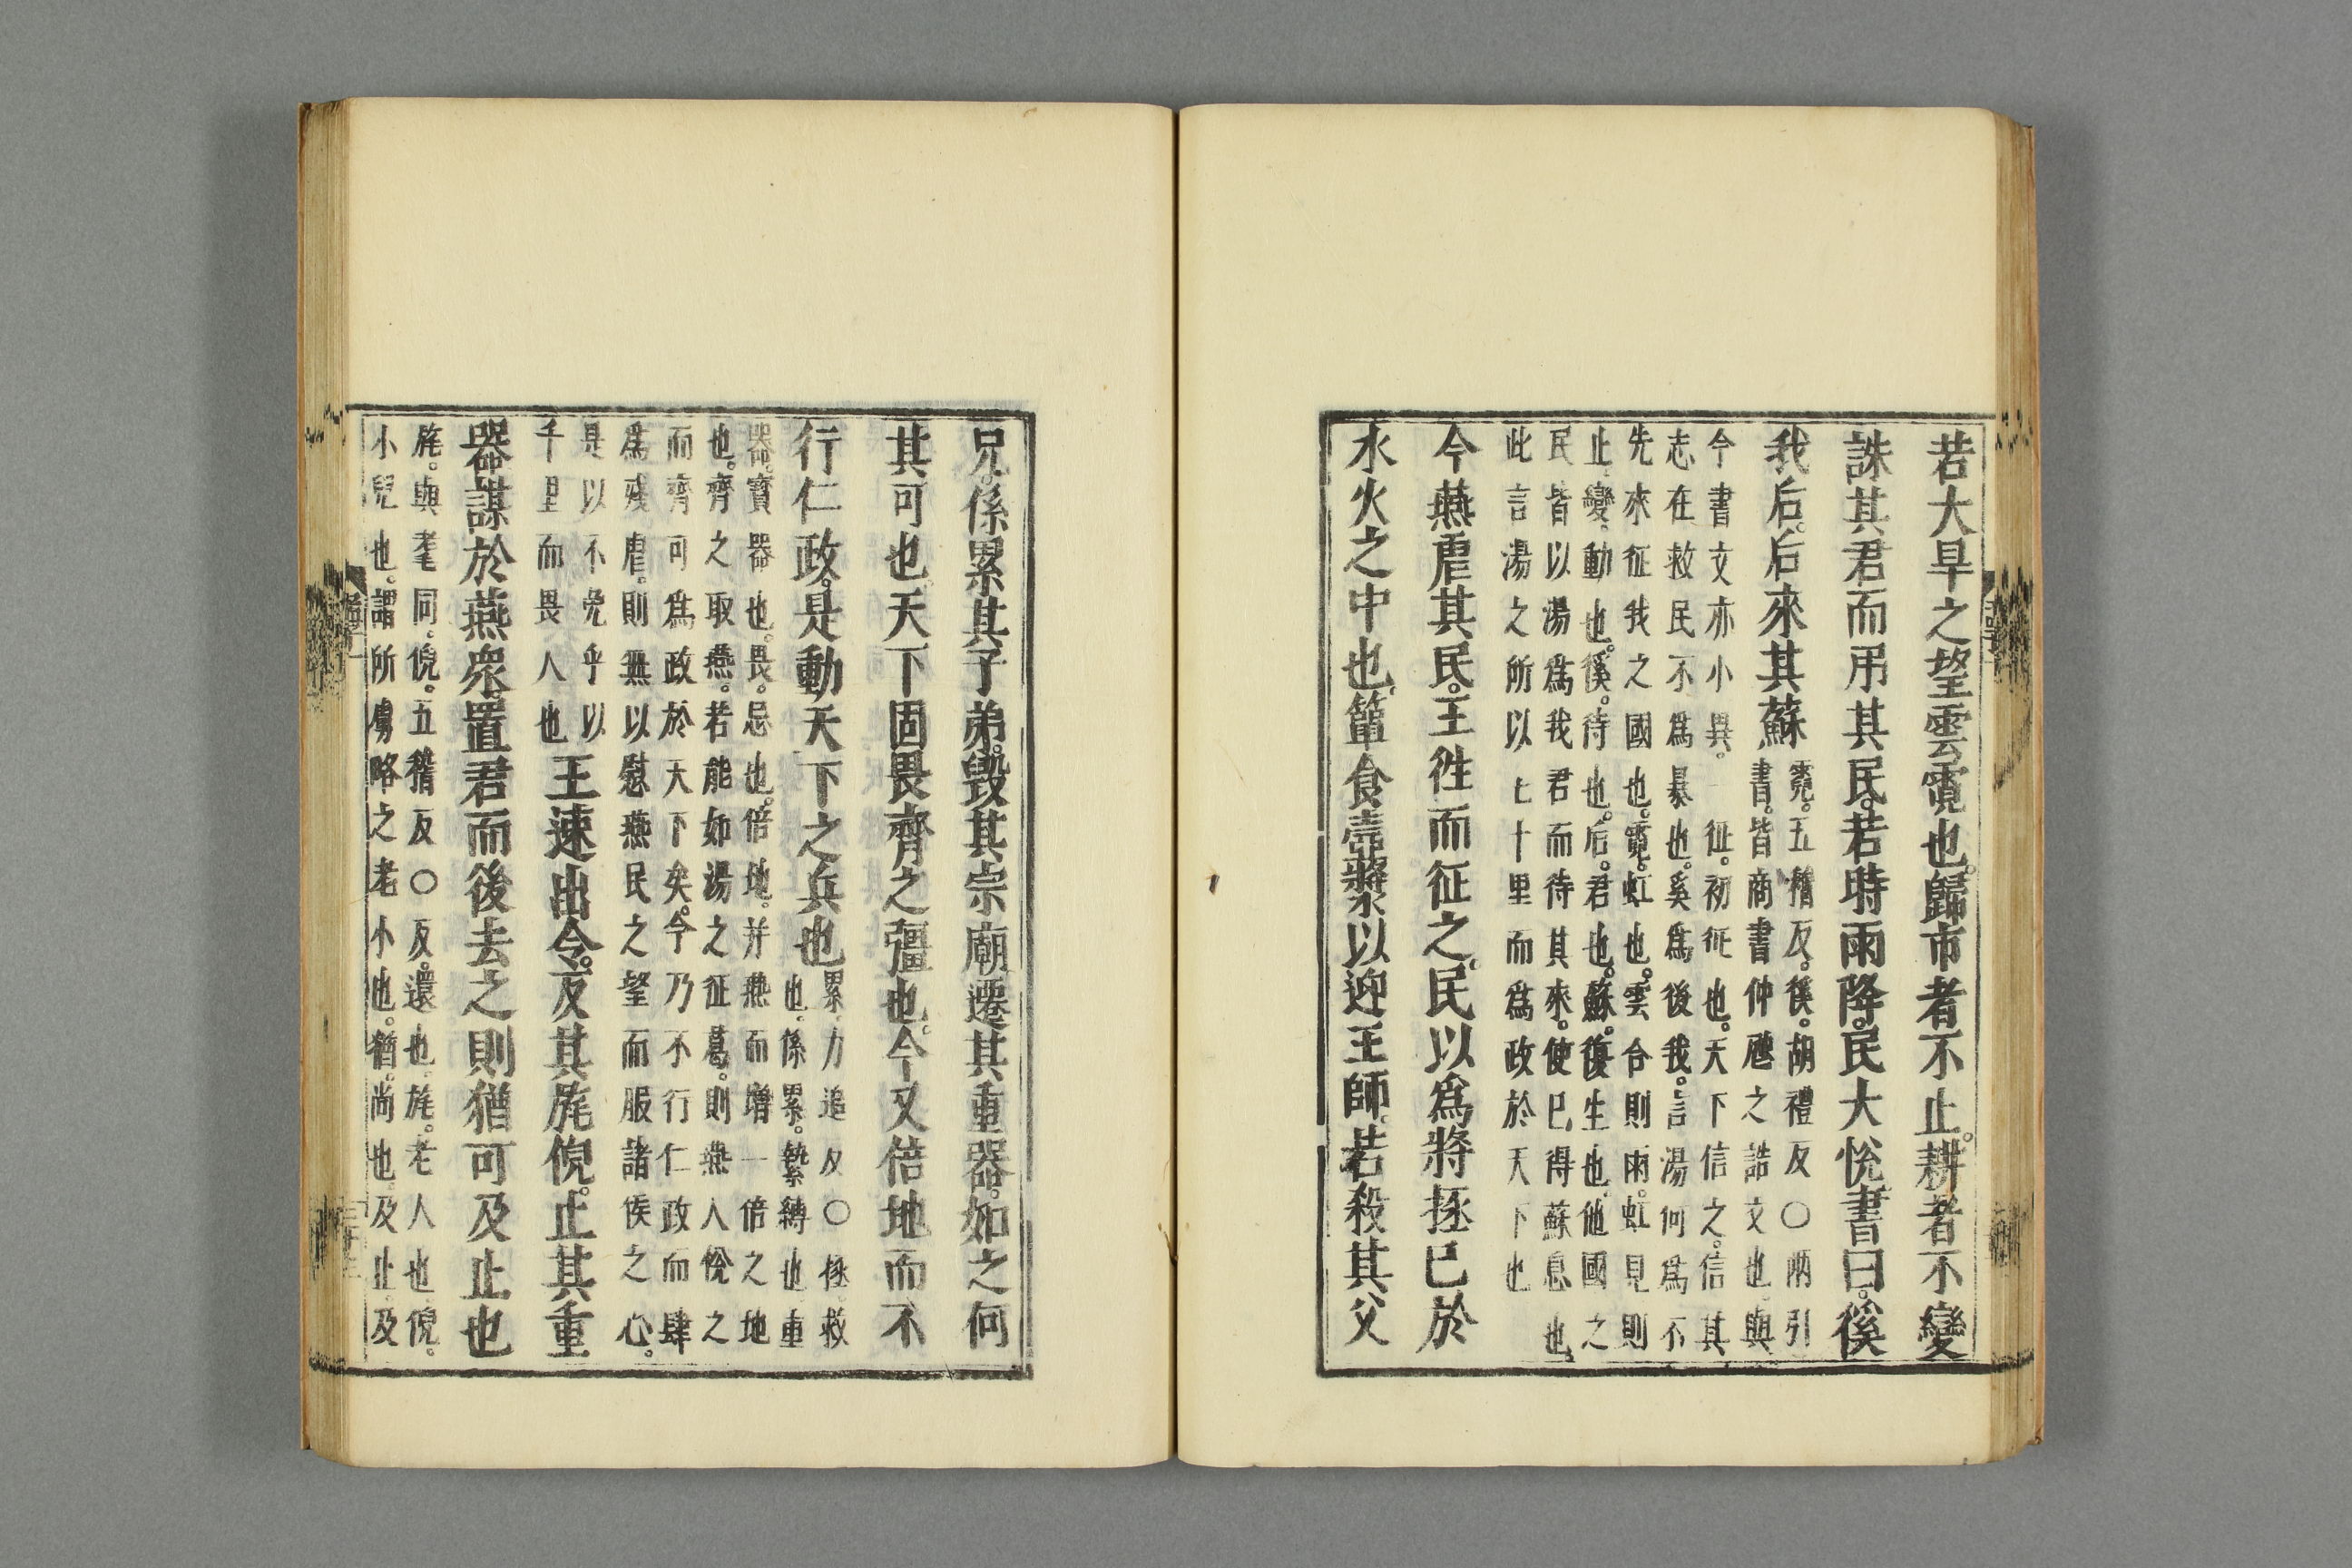 若大旱之望雲霓也。歸市者不止。耕者不變
誅其君而弔其民。若時雨降。民大悅。書曰。徯
我后。后來其蘇
霓。五稽反。徯。胡禮反○兩引
書。皆商書仲虺之誥文也。與
今書文亦小異。一征。初征也。天下信之。信其
志在救民不爲暴也。奚爲後我。言湯何爲不
先來征我之國也。霓。虹也。雲合則雨。虹見則
止。變。動也。徯。待也。后。君也。蘇。復生也。他國之
民皆以湯爲我君而待其來。使已得蘇息也
此言湯之所以七十里而爲政於天下也
今燕虐其民。王徃而征之。民以爲將拯已於
水火之中也。簞食壺漿以迎王師。若殺其父
兄。係累其子弟。毀其宗廟。遷其重器。如之何
其可也。天下固畏齊之彊也。今又倍地而不
行仁政。是動天下之兵也
累。力追反○拯。救
也。係累。縶縛也。重
器。寶器也。畏。忌也。倍地。并燕而增一倍之地
也。齊之取燕。若能如湯之征葛。則燕人悅之
而齊可爲政於天下矣。今乃不行仁政而肆
爲殘虐。則無以慰燕民之望而服諸侯之心。
是以不免乎以
千里而畏人也
王速出令。反其旄倪。止其重
器。謀於燕衆。置君而後去之。則猶可及止也
旄。與耄同。倪。五稽反○反。還也。旄。老人也。倪。
小兒也。謂所虜略之老小也。猶。尚也。及止。及